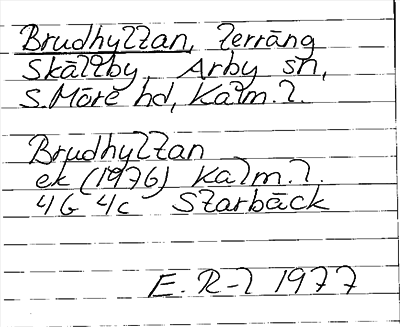 Brudhyltan, terräng
Skälby, Arby sn,
S. Möre hd, Kalm. l.
Brudhyltan
ek (1976) Kalm. l.
4G 4c Starbäck
E. R-l 1977